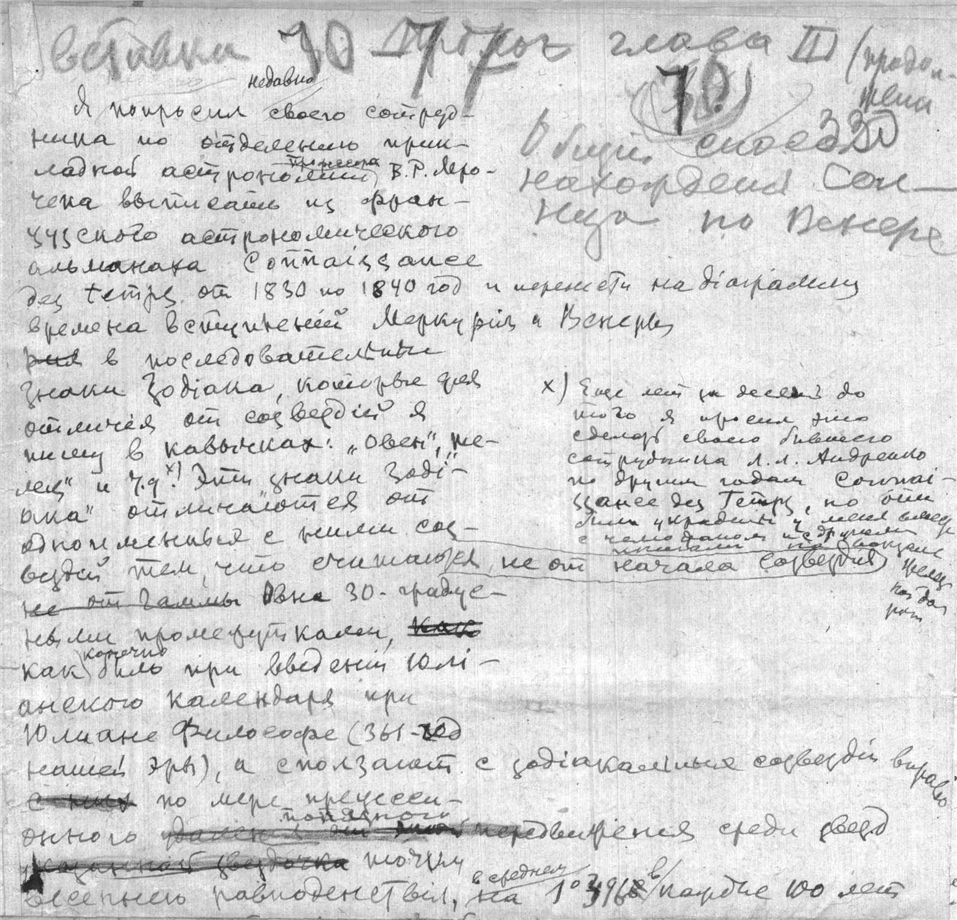 Вставка 70 77 глава III (продол-
жения
70
330
Общий способ
нахождения Сол-
нца по Венере
недавно
Я попросил своего сотруд-
ника по отделению прик-
ладной астрономии В.Р. Мро-
чека выписать из фран-
цузского астрономического
альманаха Connaissance
des temps от 1830 по 1840 год и перенести на діаграмму
времена вступленій Меркурія и Венеры
в последовательные
знаки Зодіака, которые для
отличія от созвездій я
пишу в кавычках: „овен“, „те-
лец“ и т.д. х) Эти знаки „Зоді-
ака“ отличаются от
одноименных с ними соз-
вездій тем, что считаются не от начала созвездия
не от Гаммы Овна 30-градус-
ными промежутками, как
конечно
как было при введеніи Юлі-
анского календаря при
Юлиане Философе (361 год
нашей эры), а сползают с зодіакальных созвездій вправо
с них по мере прецесси-
онного попятного передвижения среди звезд
точки
весеннего равноденствія, в среднем на 1°,396 в каждые 100 лет
х) Еще лет за десять до
того я просил это
сделать своего бывшего
сотрудника Л.Л. Андренко
по другим годам Connai-
ssance des Temps, но они
были украдены у меня вместе
с чемоданом и другими